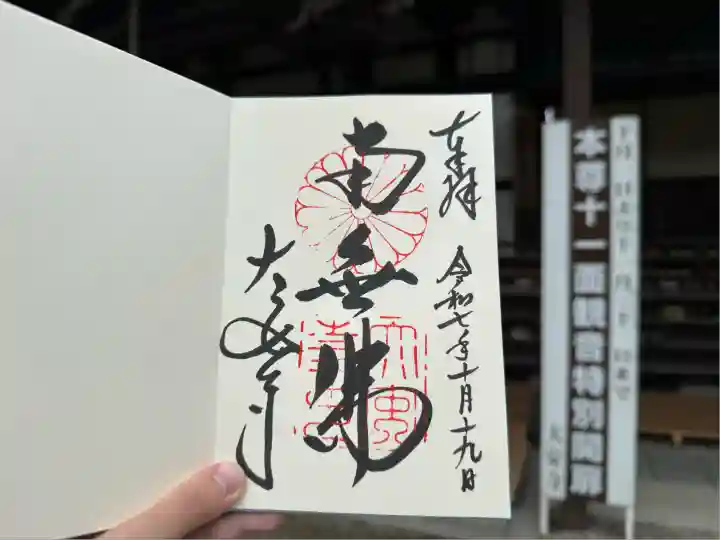 奉拝
令和七年十月十九日
南無佛
大安寺
本尊十一面観音特別開扉
大安寺